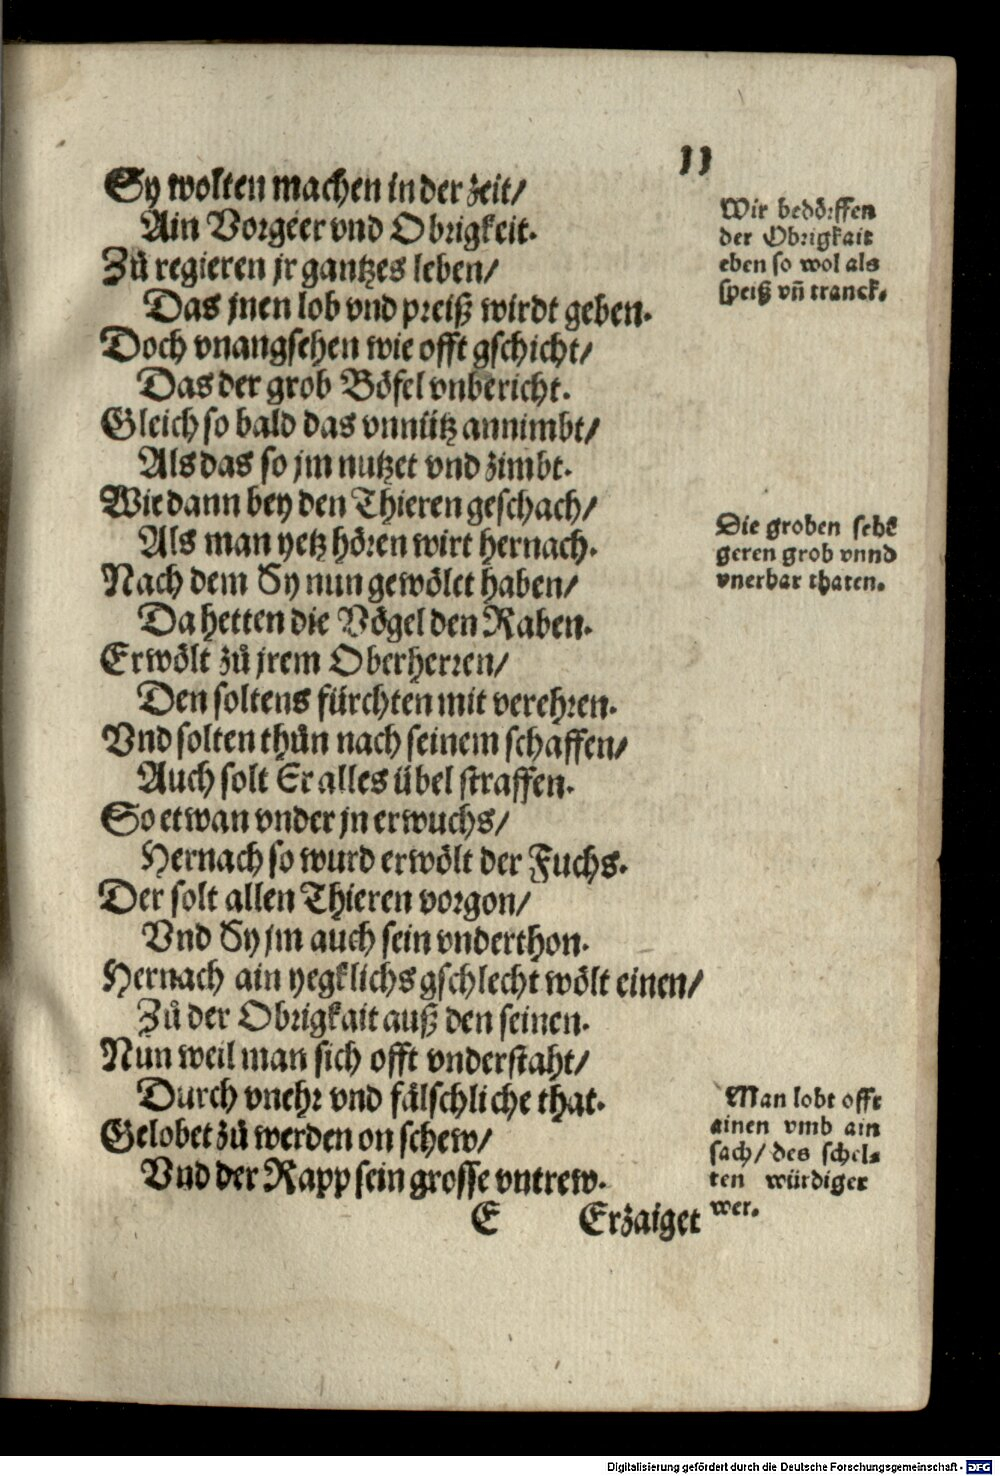 11
Sy wolten machen in der zeit/
Ain Vorgeer vnd Obrigkeit.
Zů regieren jr gantzes leben/
Das jnen lob vnd preiß wirdt geben.
Doch vnangsehen wie offt gschicht/
Das der grob Böfel vnbericht.
Gleich so bald das vnnütz annimbt/
Als das so jm nutzet vnd zimbt.
Wie dann bey den Thieren geschach/
Als man yetz hören wirt hernach.
Nach dem Sy nun gewölet haben/
Da hetten die Vögel den Raben.
Erwölt zů jrem Oberherren/
Den soltens fürchten mit verehren.
Vnd solten thůn nach seinem schaffen/
Auch solt Er alles übel straffen.
So etwan vnder jn erwuchs/
Hernach so wurd erwölt der Fuchs.
Der solt allen Thieren vorgon/
Vnd Sy jm auch sein vnderthon.
Hernach ain yegklichs gschlecht wölt einen/
Zů der Obrigkait auß den seinen.
Nun weil man sich offt vnderstaht/
Durch vnehr vnd fälschliche that.
Gelobet zů werden on schew/
Vnd der Rapp sein grosse vntrew.
E Erzaiget
Wir bedörffen
der Obrigkait
eben so wol als
speiß vñ tranck.
Die groben
geren grob vnnd
vnerbar thaten.
Man lobt offt
ainen vmb ain
sach/ des schel-
ten würdiger
wer.
Digitalisierung gefördert durch die Deutsche Forschungsgemeinschaft - DFG